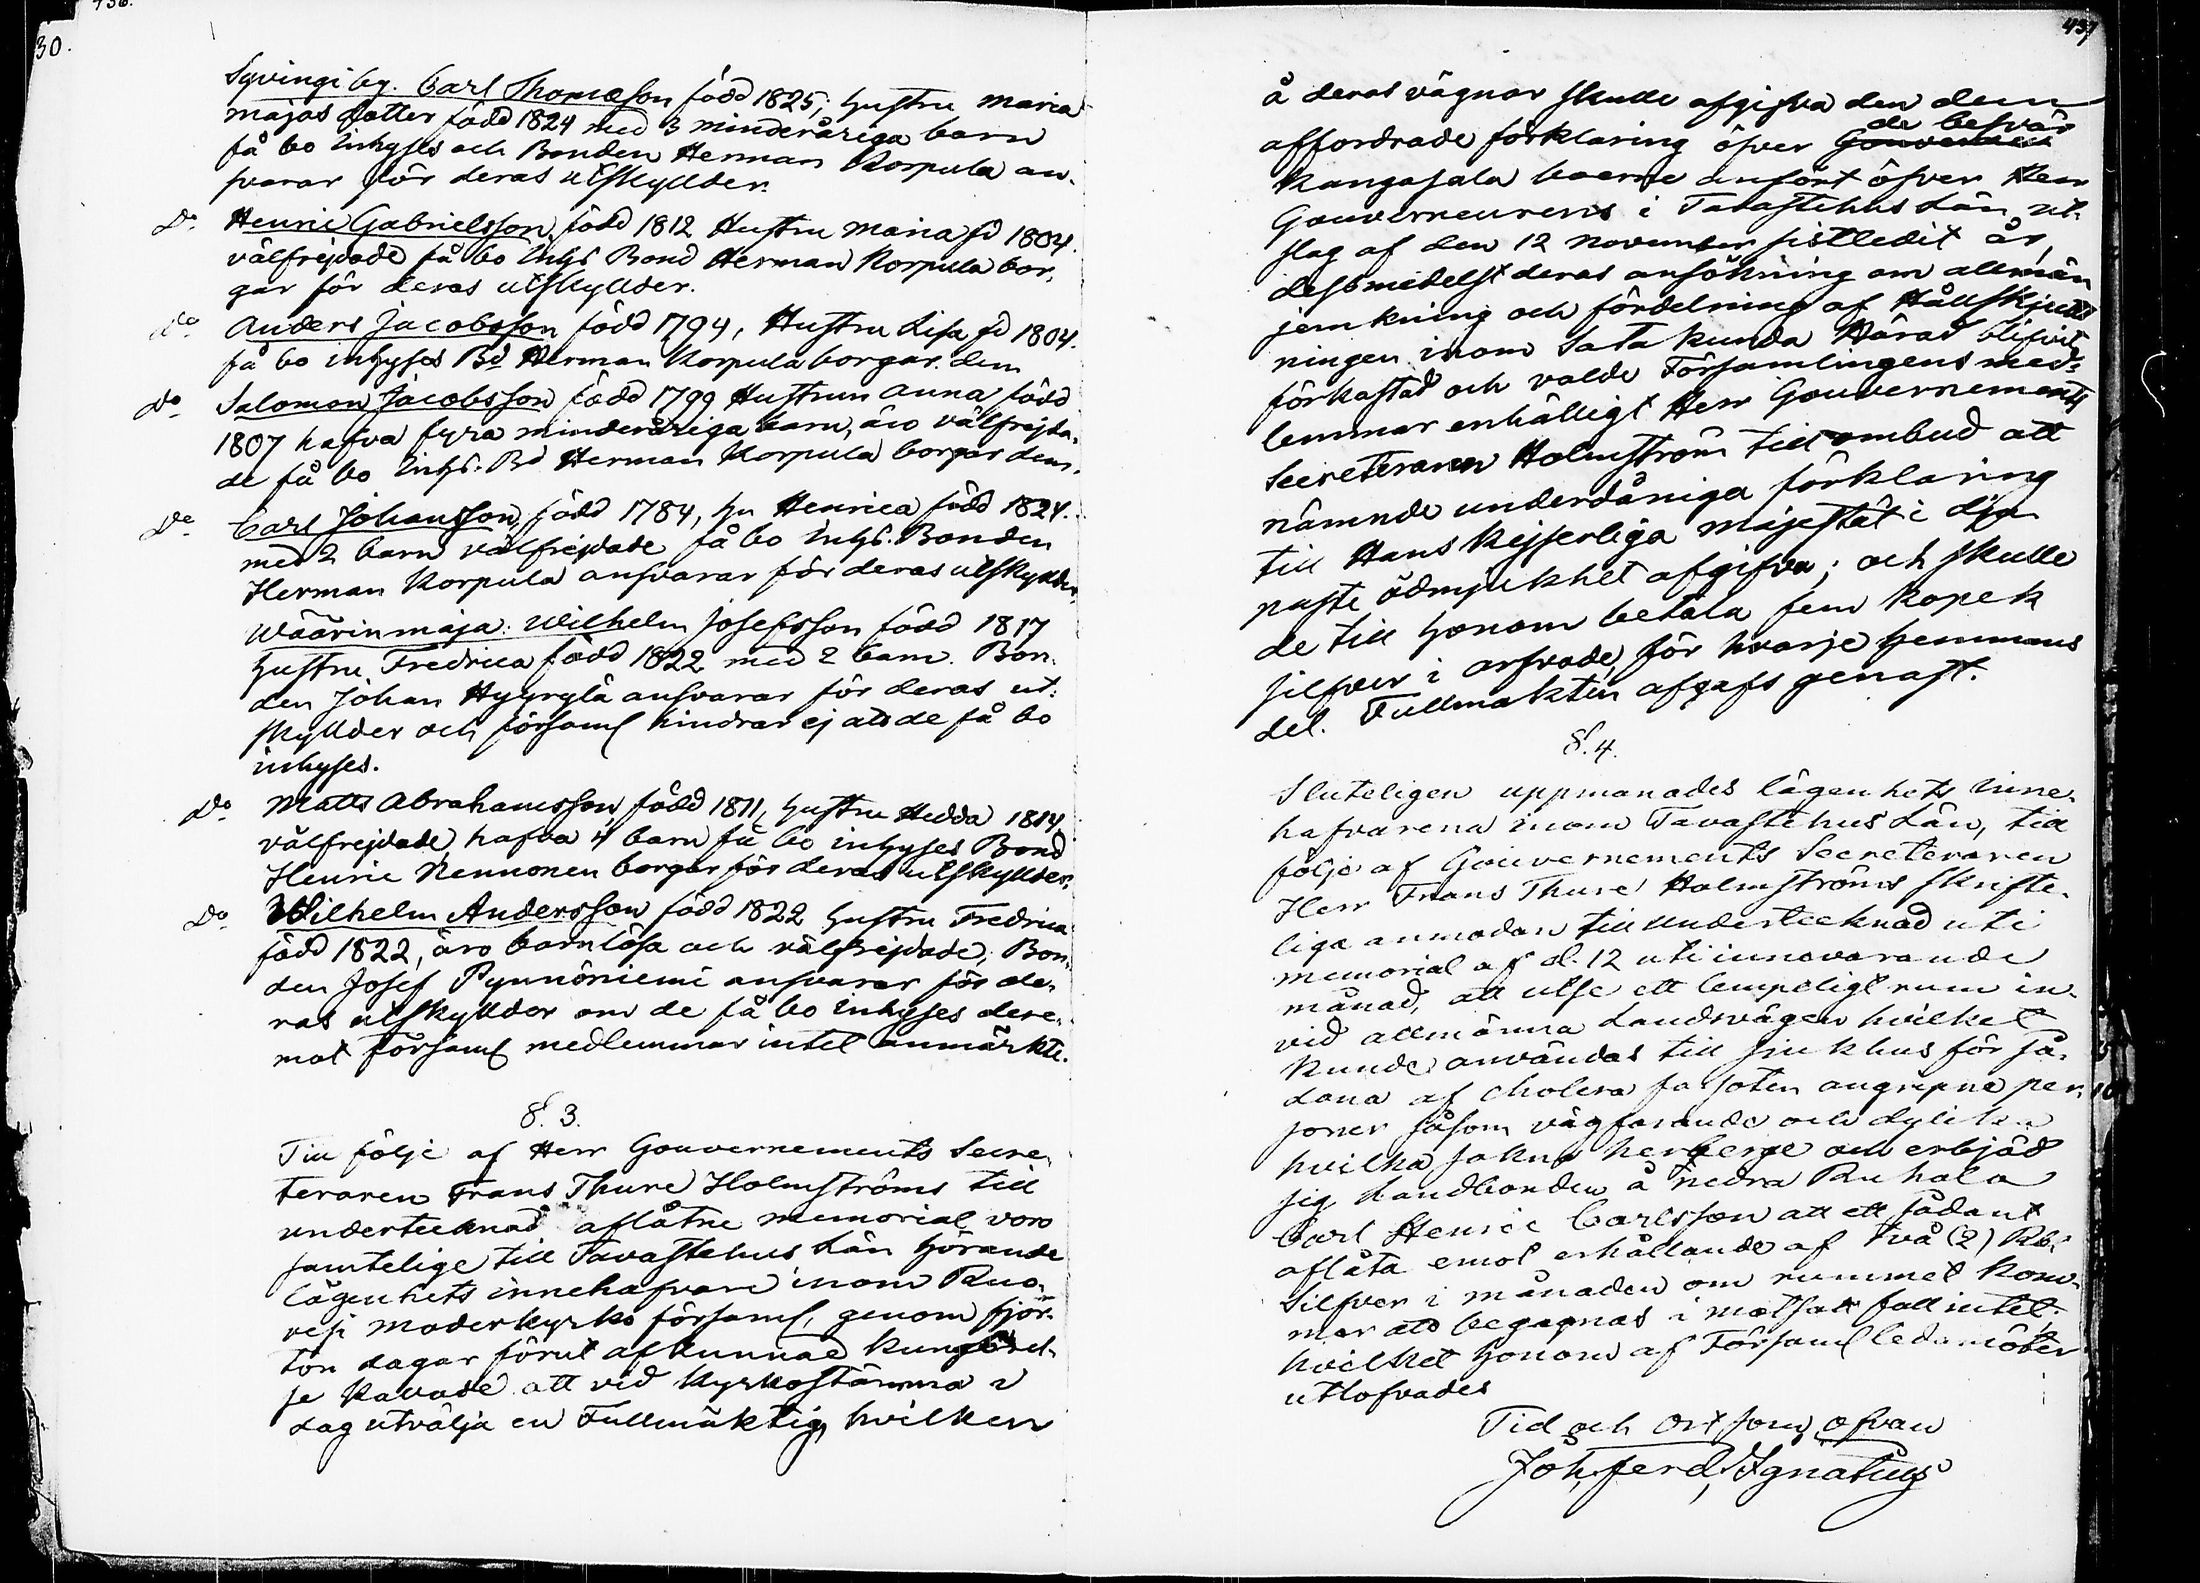 436.
30.
Syvingi by. Carl Thomasson född 1825, hustru Maria
Majas dotter född 1824 med 3 minderåriga barn
få bo inhyses och Bonden Herman Korpula an-
svarar för deras utskyllder.
Do Henric Gabrielsson, född 1812 Hustru Maria fd 1804.
välfrejdade få bo inhs Bond Herman Korpula bor-
gar för deras utskyllder.
Do Anders Jacobsson född 1794, Hustru Lisa fd 1804.
få bo inhyses Bd Herman Korpula borgar dem
Do Salomon Jacobsson född 1799 Hustrun Anna född
1807 hafva fyra minderåriga barn, äro välfrejda-
de få bo inhs. Bd Herman Korpula borgar dem.
Do Carl Johansson, född 1784, hu Henrica född 1824.
med 2 barn välfrejdade få bo inhs. Bonden
Herman Korpula ansvarar för deras utskyllder,
Wäärinmaja: Wilhelm Josefsson född 1817
hustru Fredrica född 1822 med 2 barn. Bon-
den Johan Hyyrylä ansvarar för deras ut-
skyllder och församl hindrar ej att de få bo
inhyses.
Do Matts Abrahamsson, född 1811, hustru Hedda 1814
välfrejdade, hafva 4 barn få bo inhyses Bond
Henric Nennonen borgar för deras utskyllder.
Do Wilhelm Andersson född 1822 hustru Fredrica
född 1822, äro barnlösa och välfrejdade, Bon-
den Josef Pynnöniemi ansvarar för de-
ras utskyllder om de få bo inhyses dere-
mot församl medlemmar intet anmärkte.
§. 3.
Till följe af Herr Gouvernements Secre-
teraren Frans Thure Holmströms till
undertecknad aflåtne memorial voro
samtelige till Tavastehus Län hörande
lägenhets innehafvare inom Ruo-
vesi moderkyrko församl, genom fjor-
ton dagar förut afkunnad kungörel-
se kavade att vid Kyrkostämma i
dag utvälja en Fullmäktig, hvilken
437
å deras vägnar skulle afgifva den dem
affordrade förklaring öfver Gouverneu de besvär
Kangasala boerne anfört öfver Herr
Gouverneurens i Tavastehus Län ut-
slag af den 12 November sistledit år,
dessmedelst deras ansökning om allmän
jemkning och fördelning af Hållskjuts
ningen inom Satakunda Härad blifvit
förkastad och valde Församlingens med-
lemmar enhälligt Herr Gouvernements
Secreteraren Holmström till ombud att
nämnde underdåniga förklaring
till Hans Kejserliga Majestät i dju-
paste ödmjukhet afgifva; och skulle
de till honom betala fem kopek
silfver i arfvode, för hvarje hemmans
del. Fullmakten afgafs genast.
§. 4.
Sluteligen uppmanades lägenhets inne-
hafvarena inom Tavastehus Län, till
följe af Gouvernements Secreteraren
Herr Frans Thure Holmströms skrifte-
liga anmodan till undertecknad uti
memorial af d. 12 uti innevarande
månad, att utse ett lempeligt rum in-
vid allmänna Landsvägen hvilket
kunde användas till sjukhus för så-
dana af cholera farsoten angripne per-
soner såsom vägfarande och dylika
hvilka sakna herberge och erbjöd
sig Landbonden å nedra Ruhala
Carl Henric Carlsson att ett sådant
aflåta emot erhållande af två (2) Rb.
Silfver i månaden om rummet kom-
mer att begagnas i motsatt fall intet.
hvilket honom af Församl ledamöter
utlofvades
Tid och Ort som ofvan
Joh. Ferd. Ignatius